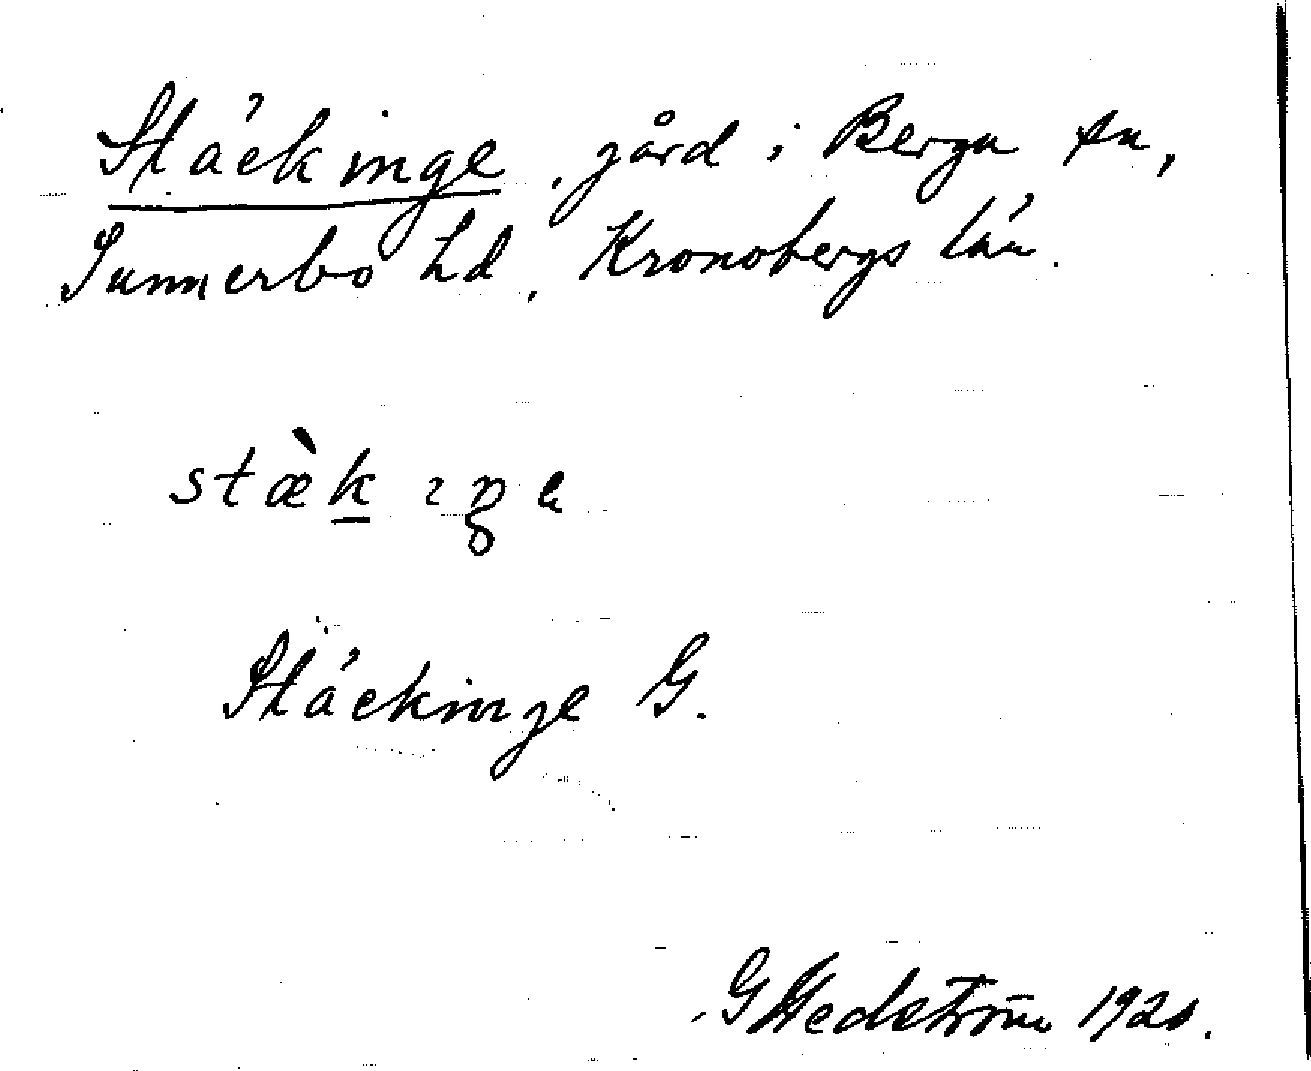 Stäckinge, gård i Berga sn,
Sunnerbo hd, Kronobergs län.
stæ̀k̲ıŋe
Stäckinge G.
G Hedström 1920.